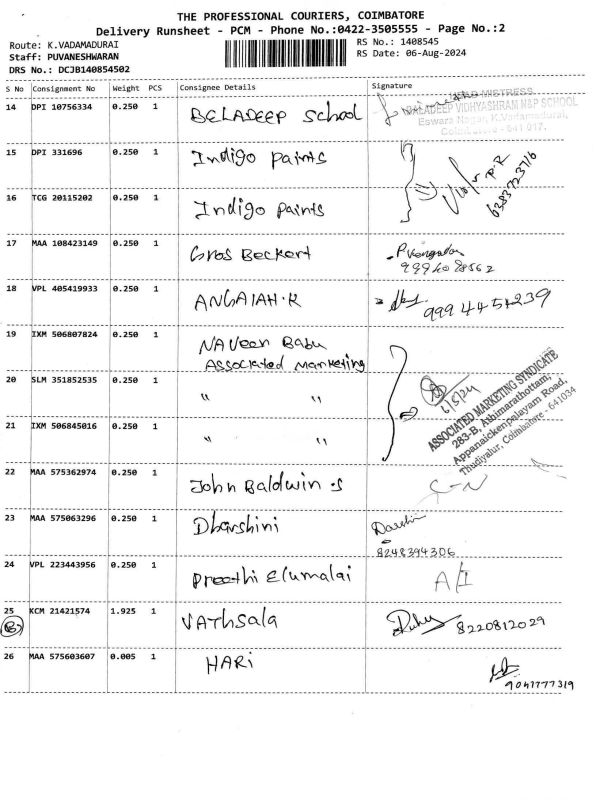 THE PROFESSIONAL COURIERS, COIMBATORE
Delivery Runsheet - PCM - Phone No.:0422-3505555 - Page No.:2
Route: K.VADAMADURAI
Staff: PUVANESHWARAN
DRS No.: DCJB140854502
RS No.: 1408545
RS Date: 06-Aug-2024
S No Consignment No Weight PCS Consignee Details Signature
14 DPI 10756334 0.250 1 BELADEEP School
MISTRESS
BALADEEP VIDHYASHRAM N&P SCHOOL
Eswara Nagar, K.Vadamadurai,
Coimbatore - 641 017.
15 DPI 331696 0.250 1 Indigo paints
16 TCG 20115202 0.250 1 Indigo paints
P.R
6383723716
17 MAA 108423149 0.250 1 Gros Beckert
18 VPL 405419933 0.250 1 ANGAIAH.K
19 IXM 506807824 0.250 1 NAVeen Babu
ASSociated Marketing
20 SLM 351852535 0.250 1 " "
21 IXM 506845016 0.250 1 " "
ASSOCIATED MARKETING SYNDICATE
283-B, Athimarathottam,
Appanaickenpalayam Road,
Thudiyalur, Coimbatore - 641034
22 MAA 575362974 0.250 1 John Baldwin .s
23 MAA 575063296 0.250 1 Dharshini
8248394306
24 VPL 223443956 0.250 1 Preethi Elumalai
25 KCM 21421574 1.925 1 VAThSala
8220812029
26 MAA 575603607 0.005 1 HARi
9047777319